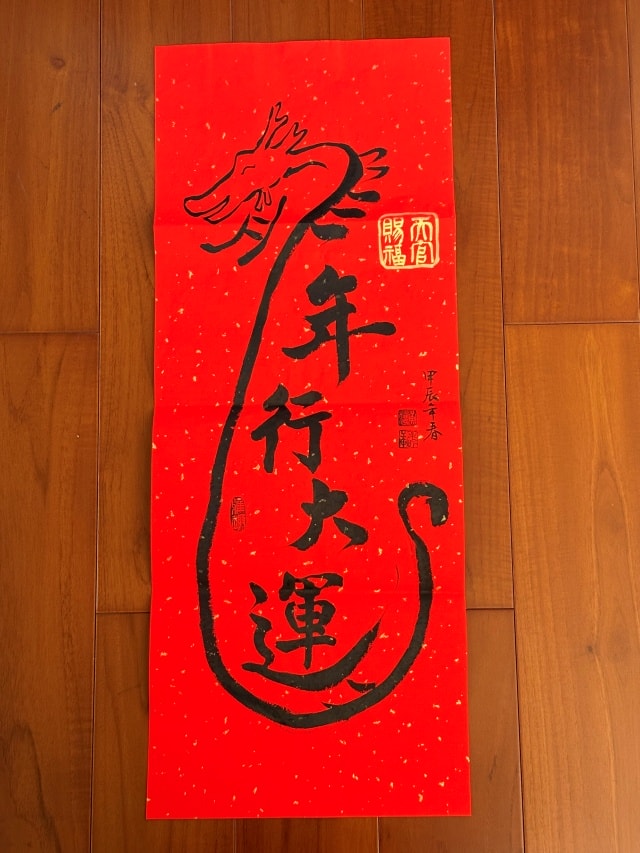 龍年行大運
天官
賜福
甲辰年春